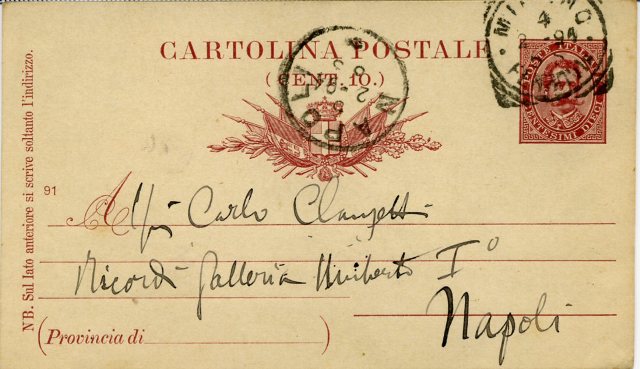 CARTOLINA POSTALE
(CENT. 10.)
NAPOLI
MILANO
4
2-94
POSTE ITALIANE
CENTESIMI DIECI
NB. Sul lato anteriore si scrive soltanto l'indirizzo.
91
A
Carlo Clausetti
Ricordi Galleria Umberto I°
Napoli
(Provincia di